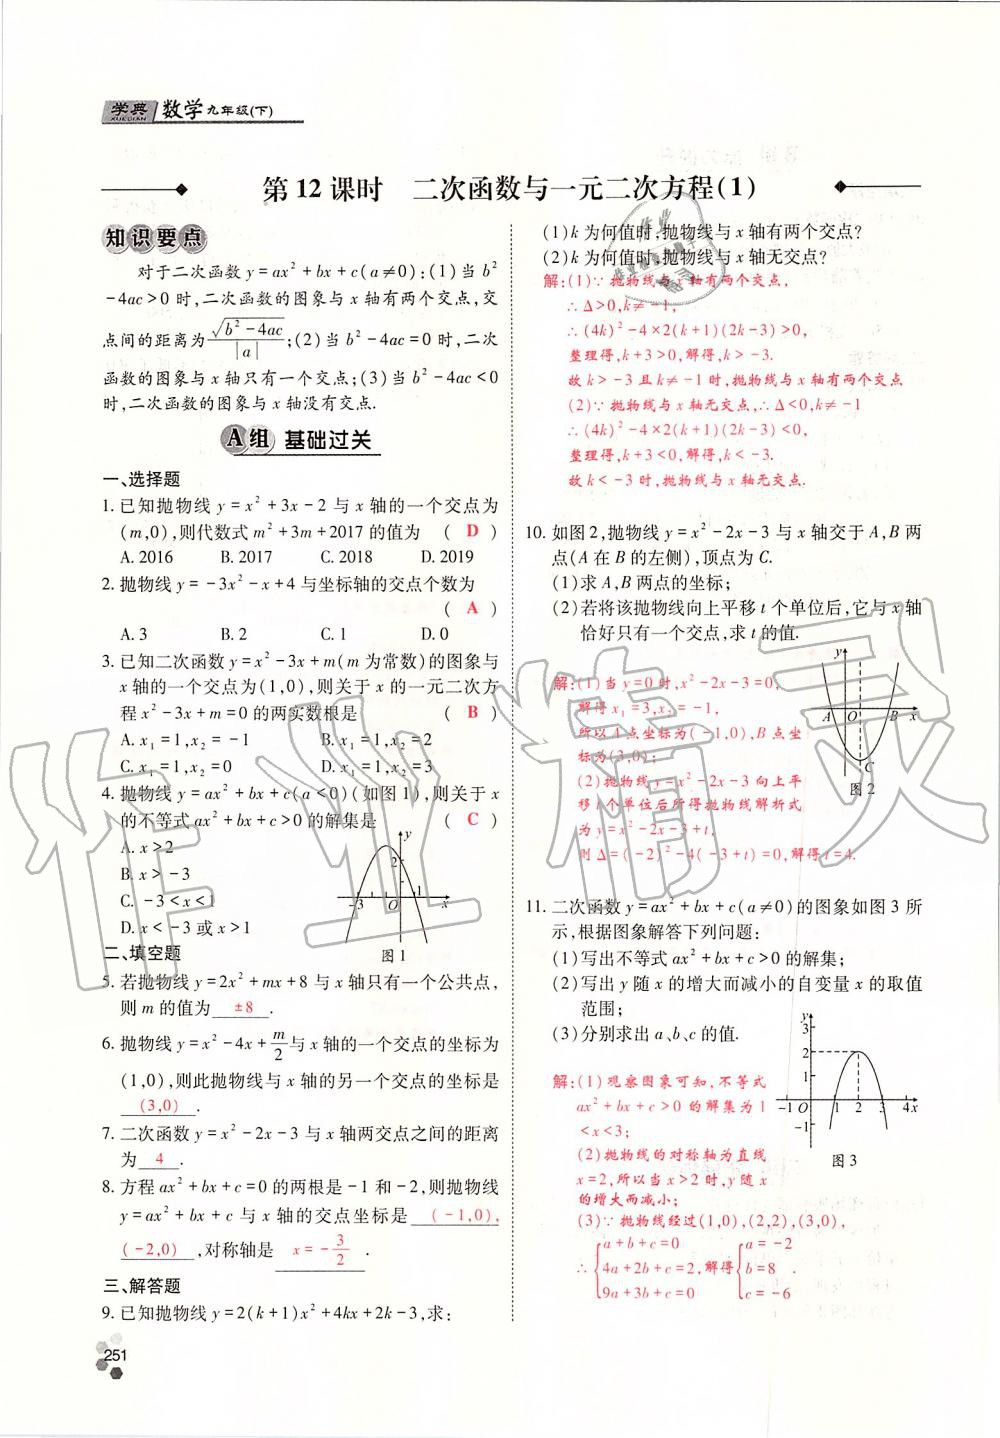 学典 XUEDIAN 数学 九年级(下)
第12课时 二次函数与一元二次方程(1)
知识要点
对于二次函数y=ax²+bx+c(a≠0):(1)当b²
-4ac>0时,二次函数的图象与x轴有两个交点,交
点间的距离为√(b²-4ac)/|a|;(2)当b²-4ac=0时,二次
函数的图象与x轴只有一个交点;(3)当b²-4ac<0
时,二次函数的图象与x轴没有交点.
A组 基础过关
一、选择题
1. 已知抛物线y=x²+3x-2与x轴的一个交点为
(m,0),则代数式m²+3m+2017的值为 ( D )
A. 2016 B. 2017 C. 2018 D. 2019
2. 抛物线y=-3x²-x+4与坐标轴的交点个数为
( A )
A. 3 B. 2 C. 1 D. 0
3. 已知二次函数y=x²-3x+m(m为常数)的图象与
x轴的一个交点为(1,0),则关于x的一元二次方
程x²-3x+m=0的两实数根是 ( B )
A. x₁=1,x₂=-1 B. x₁=1,x₂=2
C. x₁=1,x₂=0 D. x₁=1,x₂=3
4. 抛物线y=ax²+bx+c(a<0)(如图1),则关于x
的不等式ax²+bx+c>0的解集是 ( C )
A. x>2
B. x>-3
C. -3<x<1
D. x<-3或x>1
y
2
-3 O 1 x
图1
二、填空题
5. 若抛物线y=2x²+mx+8与x轴只有一个公共点,
则m的值为 ±8 .
6. 抛物线y=x²-4x+m/2与x轴的一个交点的坐标为
(1,0),则此抛物线与x轴的另一个交点的坐标是
(3,0) .
7. 二次函数y=x²-2x-3与x轴两交点之间的距离
为 4 .
8. 方程ax²+bx+c=0的两根是-1和-2,则抛物线
y=ax²+bx+c与x轴的交点坐标是 (-1,0),
(-2,0) ,对称轴是 x=-3/2 .
三、解答题
9. 已知抛物线y=2(k+1)x²+4kx+2k-3,求:
251
(1)k为何值时,抛物线与x轴有两个交点?
(2)k为何值时,抛物线与x轴无交点?
解:(1)∵抛物线与x轴有两个交点,
∴Δ>0,k≠-1,
∴(4k)²-4×2(k+1)(2k-3)>0,
整理得,k+3>0,解得,k>-3.
故k>-3且k≠-1时,抛物线与x轴有两个交点
(2)∵抛物线与x轴无交点,∴Δ<0,k≠-1
∴(4k)²-4×2(k+1)(2k-3)<0,
整理得,k+3<0,解得,k<-3.
故k<-3时,抛物线与x轴无交点.
10. 如图2,抛物线y=x²-2x-3与x轴交于A,B两
点(A在B的左侧),顶点为C.
(1)求A,B两点的坐标;
(2)若将该抛物线向上平移t个单位后,它与x轴
恰好只有一个交点,求t的值.
解:(1)当y=0时,x²-2x-3=0,
解得x₁=3,x₂=-1,
所以A点坐标为(-1,0),B点坐
标为(3,0);
(2)抛物线y=x²-2x-3向上平
移t个单位后所得抛物线解析式
为y=x²-2x-3+t,
则Δ=(-2)²-4(-3+t)=0,解得t=4.
y
A O B x
C
图2
11. 二次函数y=ax²+bx+c(a≠0)的图象如图3所
示,根据图象解答下列问题:
(1)写出不等式ax²+bx+c>0的解集;
(2)写出y随x的增大而减小的自变量x的取值
范围;
(3)分别求出a、b、c的值.
解:(1)观察图象可知,不等式
ax²+bx+c>0的解集为1
<x<3;
(2)抛物线的对称轴为直线
x=2,所以当x>2时,y随x
的增大而减小;
(3)∵抛物线经过(1,0),(2,2),(3,0),
a+b+c=0 a=-2
∴ 4a+2b+c=2,解得 b=8 .
9a+3b+c=0 c=-6
y
3
2
1
-1 O 1 2 3 4 x
-1
图3
作业精灵